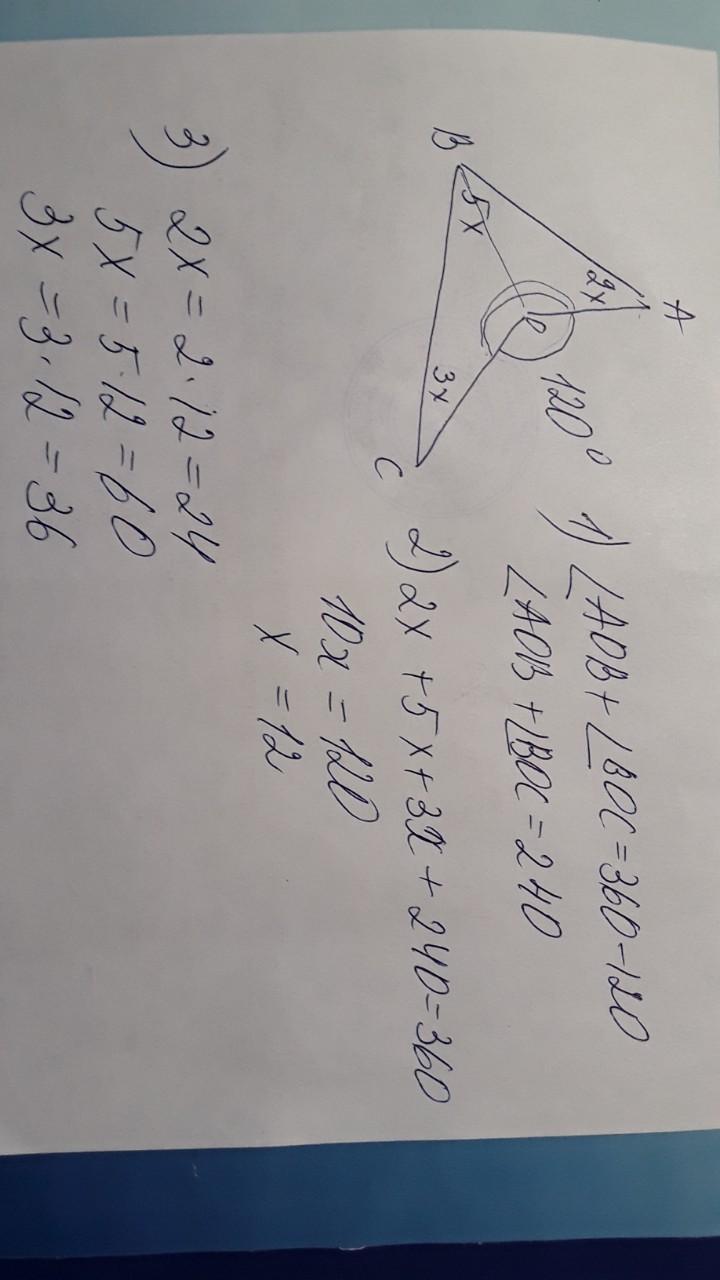 A
120°
2x
O
B
5x
3x
C
1) ∠AOB + ∠BOC = 360 - 120
∠AOB + ∠BOC = 240
2) 2x + 5x + 3x + 240 = 360
10x = 120
x = 12
3) 2x = 2·12 = 24
5x = 5·12 = 60
3x = 3·12 = 36